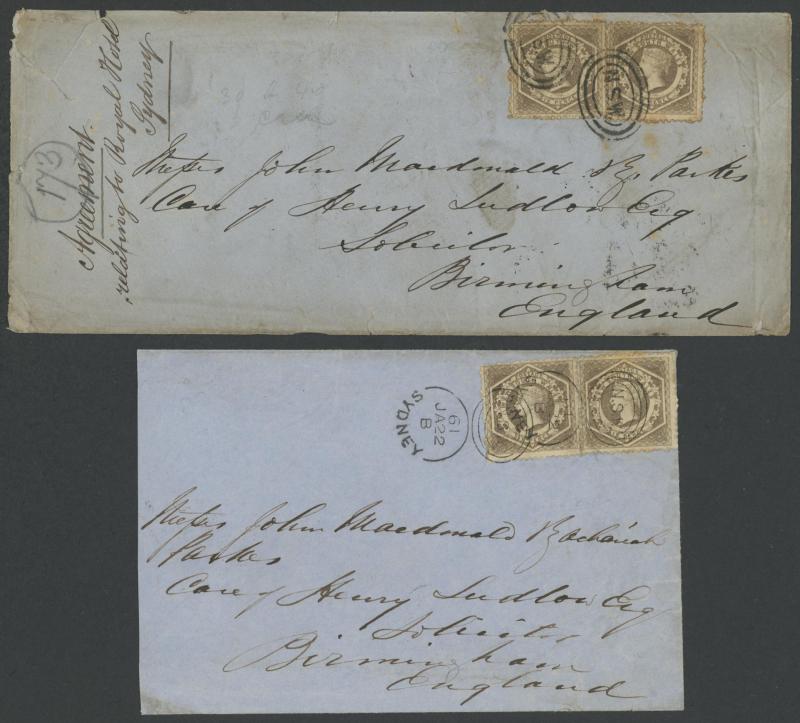 Agreement
relating to Royal Hotel
Sydney
173
NSW
Messrs John Macdonald & Z. Parkes
Care of Henry Ludlow Esq
Solicitor
Birmingham
England
SYDNEY
B
JA 22
61
NSW
Messrs John Macdonald & Zachariah
Parkes
Care of Henry Ludlow Esq
Solicitor
Birmingham
England